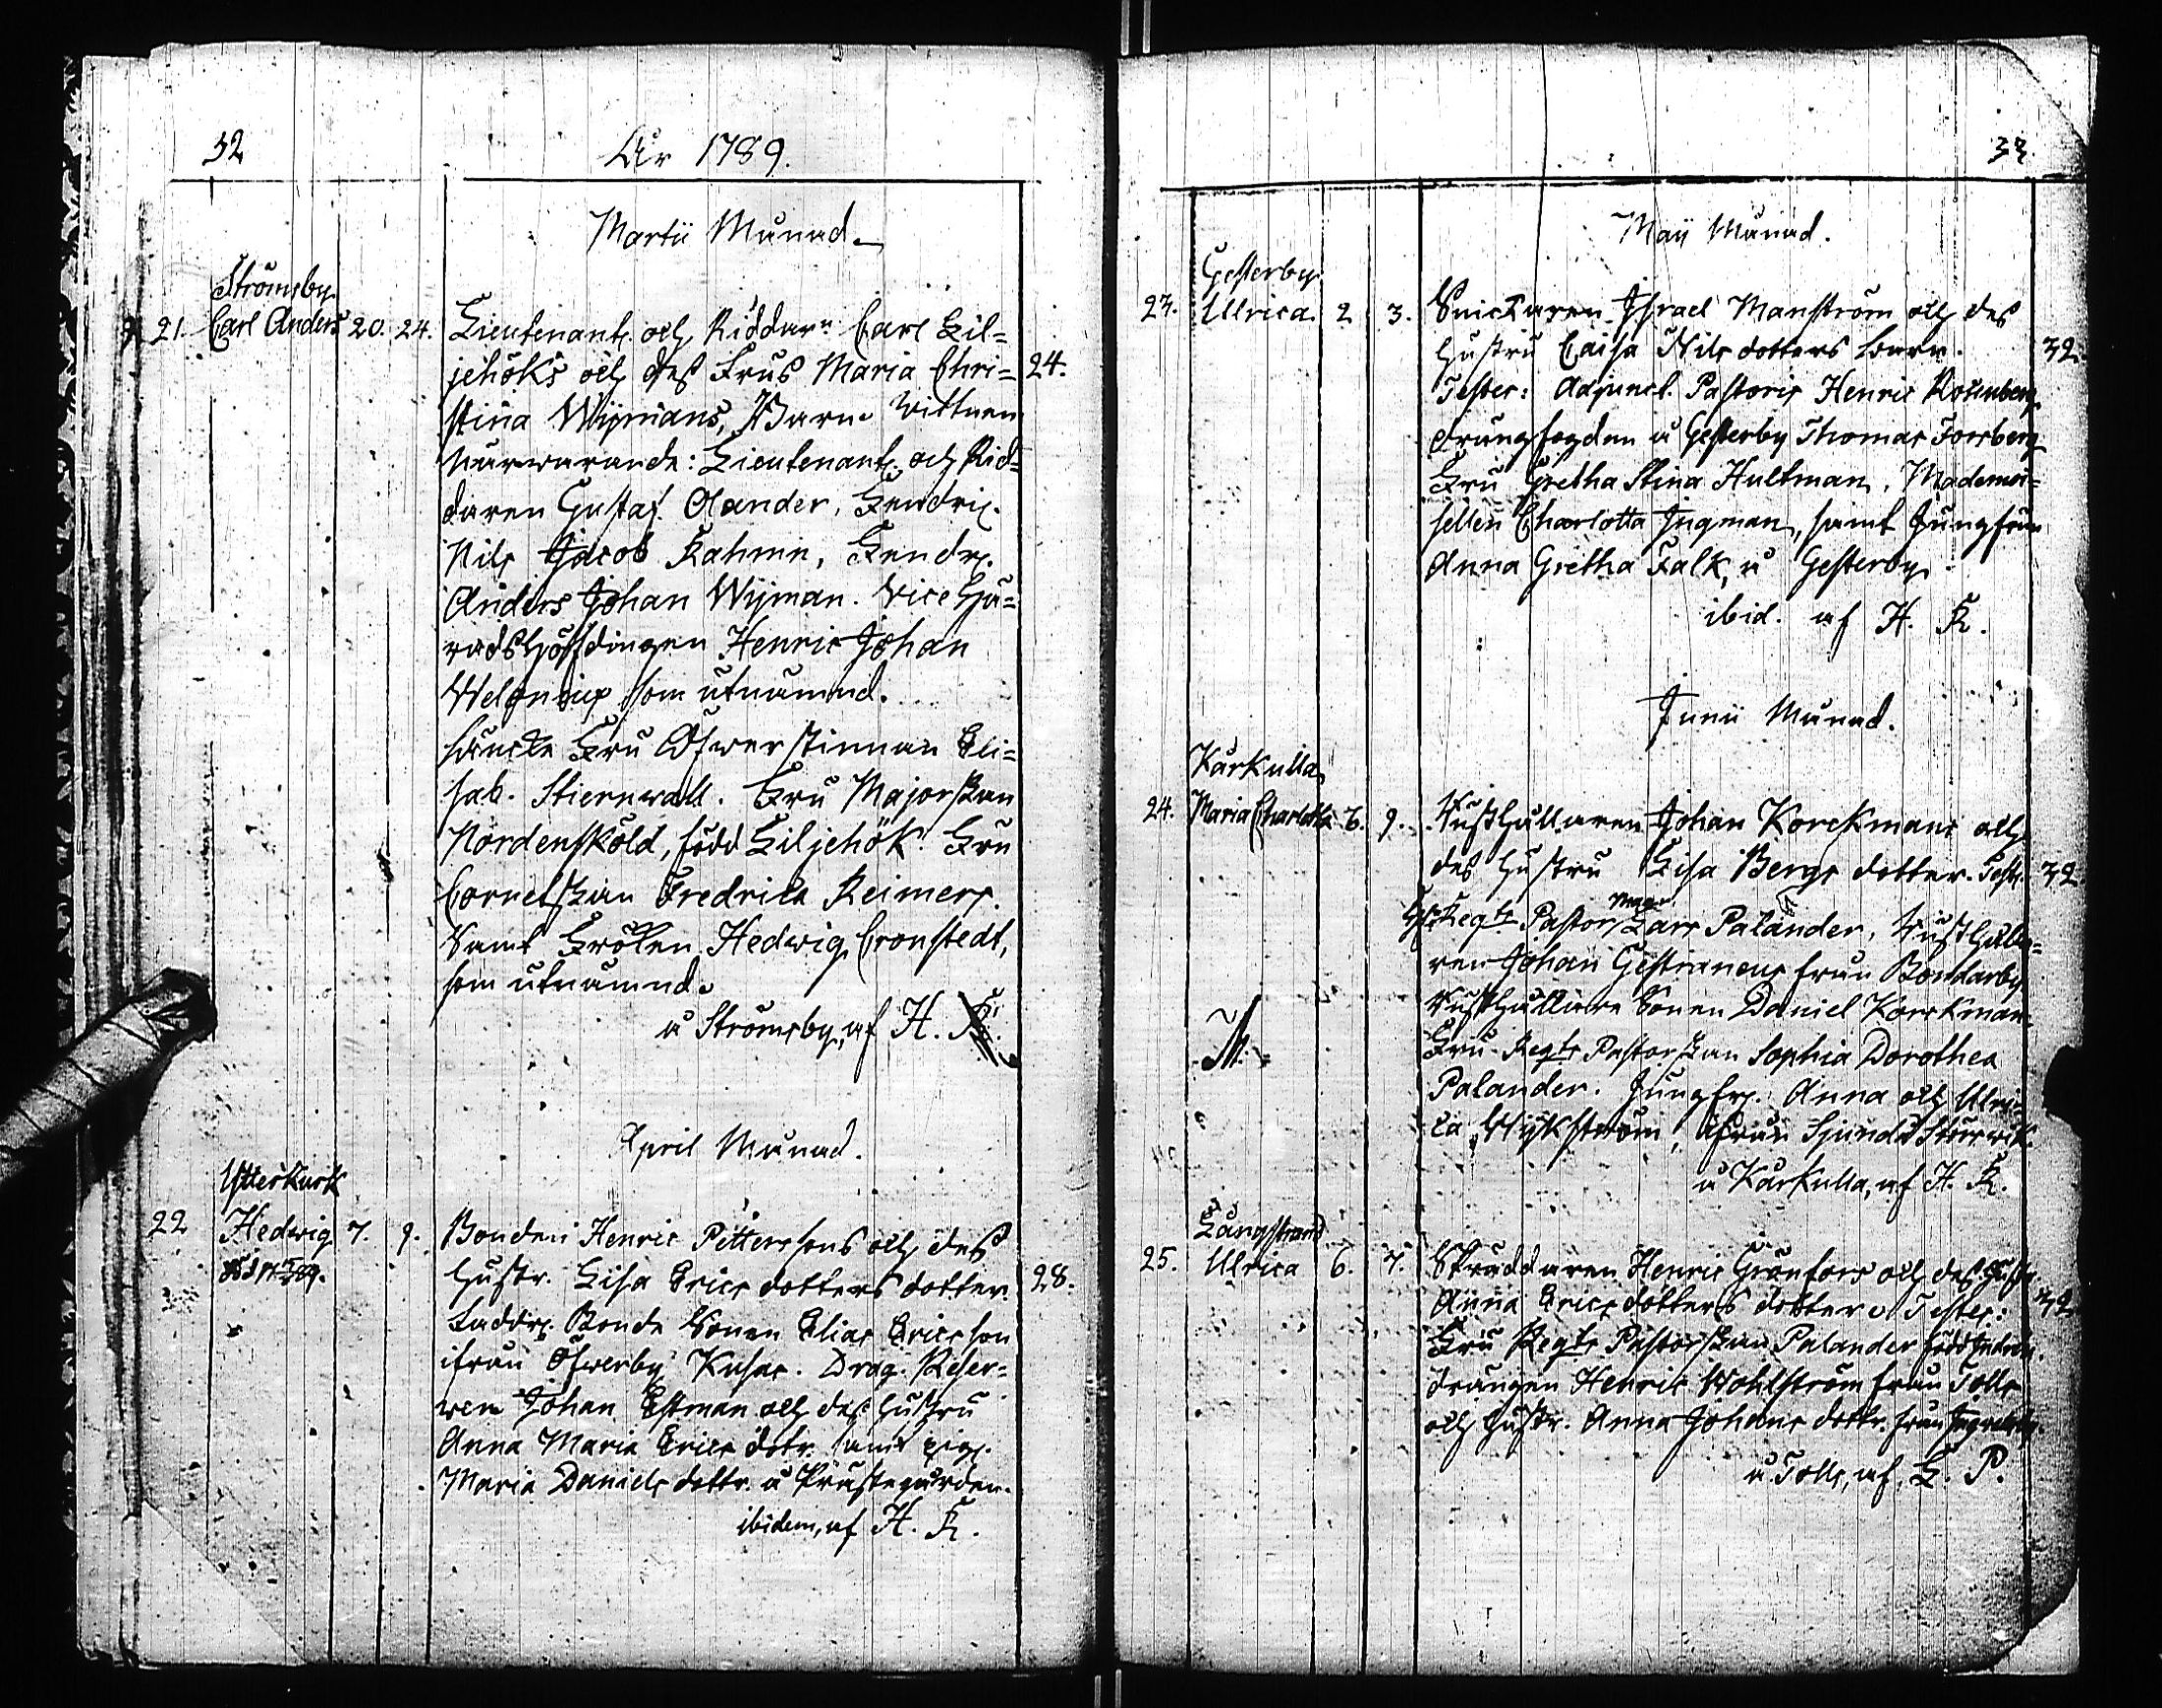 32
År 1789.
Martii Månad.
Strömsby
21. Carl Anders 20. 24. Lieutenant. och Riddarn Carl Lil=
jehöks och dess Frus Maria Chri= 24.
stina Wijmans, Barn. Wittnen
närwarande: Lieutenant. och Rid=
daren Gustaf Olander, Fendric.
Nils Jacob Rahmn, Fendr.
Anders Johan Wijman. Vice Hä=
radshöfdingen Henric Johan
som utnämnd.
Fru Öfwerstinnan Eli=
sab. Stiernwall. Fru Majorskan
Nordensköld, född Liljehök. Fru
Cornetskan Fredrica Reimers.
Samt Frölen Hedwig Cronstedt,
som utnämnd.
å Strömsby, af H. R.
April Månad.
Ytterkurk
22 Hedwig 7. 9. Bonden Henric Petterssons och dess
Hustr. Lisa Ericsdotters dotter. 28.
Faddr. Bonde Sonen Elias Ericsson
ifrån Öfwerby Kusas. Drag. Reser=
wen Johan Ekman och dess Hustru
Anna Maria Erics dotr. samt pig.
Maria Daniels dottr. å Prästegården.
ibidem, af H. R.
33
Maji Månad.
Gesterby
23. Ulrica 2 3. Snickaren Israel Manström och des
Hustru Caisa Nils dotters barn. 32
Testes: Adjunct. Pastoris Henric Rosenberg
drängfogden å Gesterby Thomas Forsberg
Fru Gretha Stina Hultman, Mademoi=
sellen Charlotta Ingman, samt Jungfrun
Anna Gretha Falk, å Gesterby
ibid. af H. R.
Junii Månad.
Karkulla
24. Maria Charlotta 6. 9. Rusthållaren Johan Korckmans och
des Hustru Lisa Bergs dotter. Test. 32
Regts Pastor Mag. Lars Palander, Rusthålla=
ren Johan Gestraneus från Bondarby
Rusthållare Sonen Daniel Korckman
Fru Regts Pastorskan Sophia Dorothea
Palander. Jungfr. Anna och Ulri=
ca Wijkström, ifrån Sjundå
å Karkulla, af H. R.
Långstrand
25. Ulrica 6. 7. Skräddaren Henric Grönfors och des Hustr
Anna Ericsdotters dotter. Testes: 32
Fru Regts Pastorskan Palander född
drängen Henric Wohlström från Tolls
och Hustr. Anna Johans dottr. från
å Tolls, af L. P.